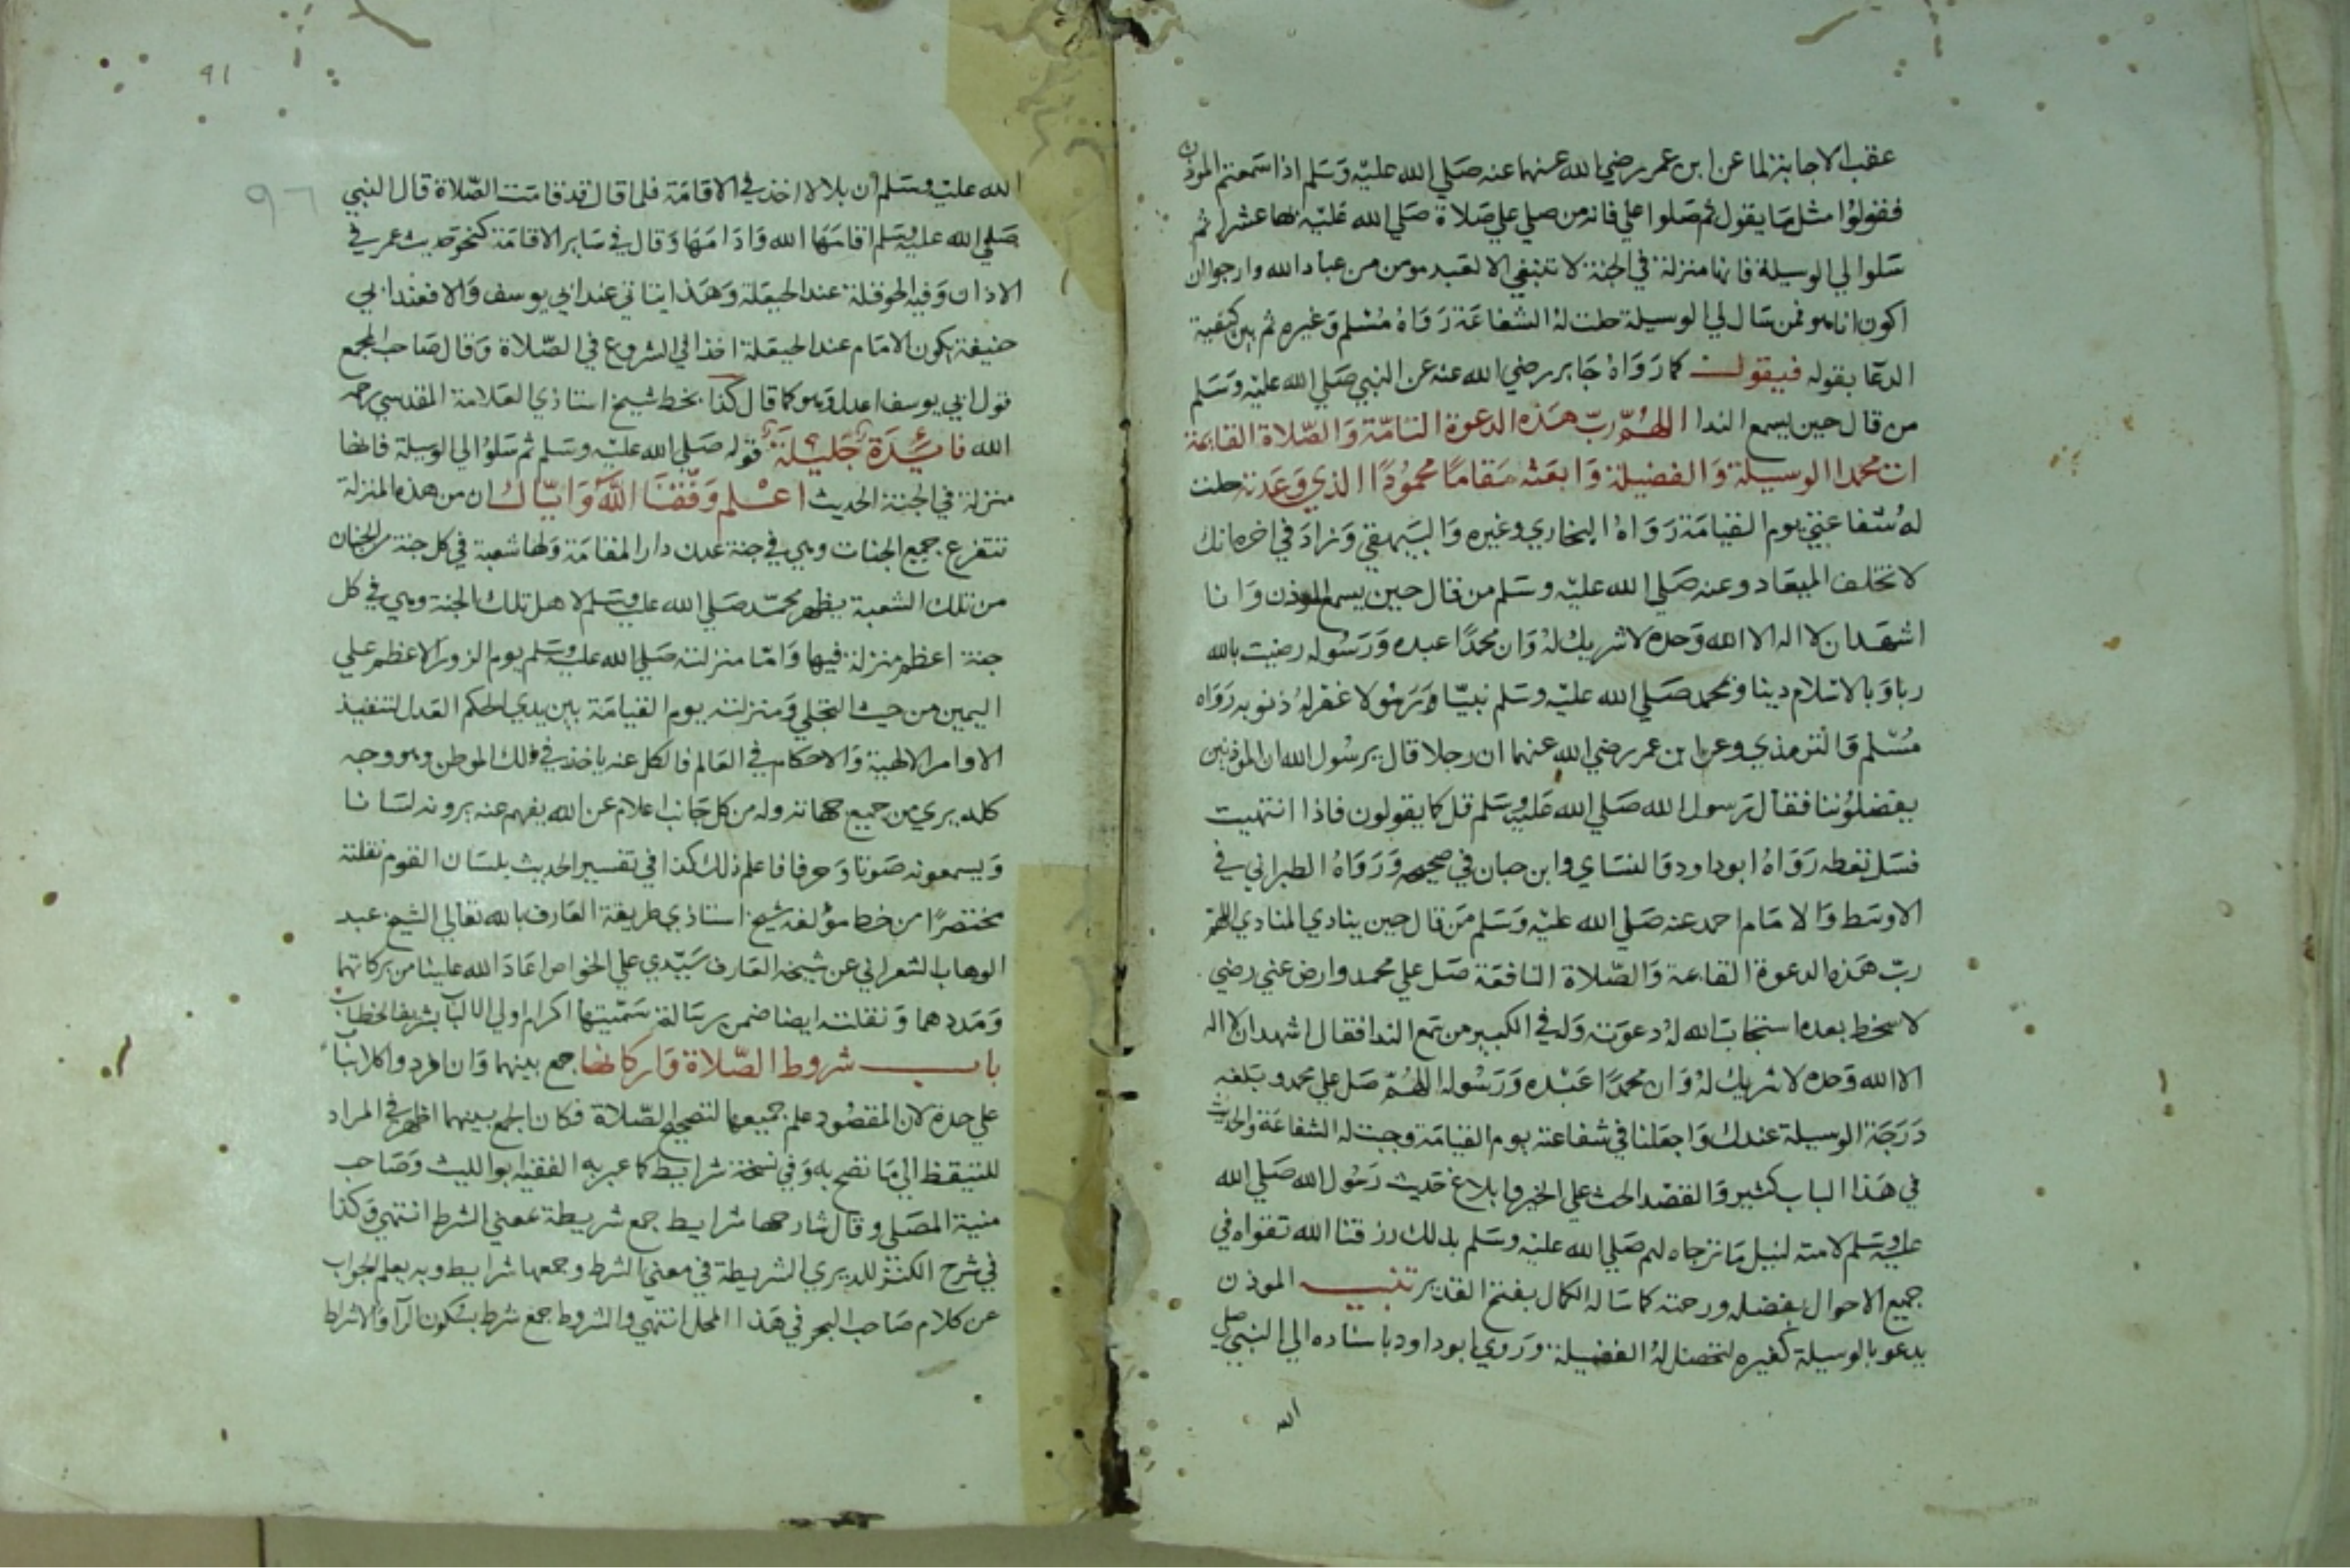 عقب الاجابة لما عن ابن عمر رضي الله عنهما عنه صلي الله عليه وسلم اذا سمعتم الموذن
فقولوا مثل ما يقول ثم صلوا علي فانه من صلي علي صلاة صلي الله عليه بها عشرا ثم
سلوا لي الوسيلة فانها منزلة في الجنة لا تنبغي الا لعبد مومن من عباد الله وارجوا ان
اكون انا هو فمن سال لي الوسيلة حلت له الشفاعة رواه مسلم وغيره ثم بين كيفية
الدعا بقوله فيقول كما رواه جابر رضي الله عنه عن النبي صلي الله عليه وسلم
من قال حين يسمع الندا اللهم رب هذه الدعوة التامة والصلاة القائمة
ات محمدا الوسيلة والفضيلة وابعثه مقاما محمودا الذي وعدته حلت
له شفاعتي يوم القيامة رواه البخاري وغيره والبيهقي وزاد في اخره انك
لا تخلف الميعاد وعنه صلي الله عليه وسلم من قال حين يسمع الموذن وانا
اشهد ان لا اله الا الله وحده لا شريك له وان محمدا عبده ورسوله رضيت بالله
ربا وبالاسلام دينا وبمحمد صلي الله عليه وسلم نبيا ورسولا غفر له ذنوبه رواه
مسلم والترمذي وعن ابن عمر رضي الله عنهما ان رجلا قال يرسول الله ان الموذنين
يفضلوننا فقال رسول الله صلي الله عليه وسلم قل كما يقولون فاذا انتهيت
فسل تعطه رواه ابو داود والنساي وابن حبان في صحيحه ورواه الطبراني في
الاوسط والامام احمد عنه صلي الله عليه وسلم من قال حين ينادي المنادي اللهم
رب هذه الدعوة القائمة والصلاة النافعة صل علي محمد وارض عني رضي
لا سخط بعده استجاب الله له دعوته وله في الكبير من سمع الندا فقال اشهد ان لا اله
الا الله وحده لا شريك له وان محمدا عبده ورسوله اللهم صل علي محمد وبلغه
درجة الوسيلة عندك واجعلنا في شفاعته يوم القيامة وجبت له الشفاعة والحديث
في هذا الباب كثير والقصد الحث علي الخير وابلاغ حديث رسول الله صلي الله
عليه وسلم لامته لنيل ما ترجاه لهم صلي الله عليه وسلم بذلك رزقنا الله تقواه في
جميع الاحوال بفضله ورحمته كما ساله الكمال بفتح القدير تنبيه الموذن
يدعو بالوسيلة كغيره لتحصل له الفضيلة وروي ابو داود باسناده الي النبي صلي
الله
٩١
٩٦
الله عليه وسلم ان بلالا اخذ في الاقامة فلما قال قد قامت الصلاة قال النبي
صلي الله عليه وسلم اقامها الله وادامها وقال في ساير الاقامة كنحو حديث عمر في
الاذان وفيه الحوقلة عند الحيعلة وهذا يتاتي عند ابي يوسف والا فعند ابي
حنيفة يكون الامام عند الحيعلة اخذا في الشروع في الصلاة وقال صاحب المجمع
قول ابي يوسف اعدل وهو كما قال كذا بخط شيخ استاذي العلامة المقدسي رحمه
الله فايدة جليلة قوله صلي الله عليه وسلم ثم سلوا لي الوسيلة فانها
منزلة في الجنة الحديث اعلم وفقنا الله واياك ان من هذه المنزلة
تتفرع جميع الجنات وهي في جنة عدن دار المقامة ولها شعبة في كل جنة من الجنان
من تلك الشعبة يظهر محمد صلي الله عليه وسلم لاهل تلك الجنة وهي في كل
جنة اعظم منزلة فيها واما منزلته صلي الله عليه وسلم يوم الزور الاعظم علي
اليمين من حيث التجلي ومنزلته يوم القيامة بين يدي الحكم العدل لتنفيذ
الاوامر الالهية والاحكام في العالم فالكل عنه ياخذ في ذلك الموطن وهو وجه
كله يري من جميع جهاته وله من كل جانب اعلام عن الله يفهم عنه يرونه لسانا
ويسمعونه صوتا وحرفا فاعلم ذلك كذا في تفسير الحديث بلسان القوم نقلته
مختصرا من خط مؤلفه شيخ استاذي طريقة العارف بالله تعالي الشيخ عبد
الوهاب الشعراني عن شيخه العارف سيدي علي الخواص اعاد الله علينا من بركاتهما
ومددهما ونقلته ايضا ضمن رسالة سميتها اكرام اولي الالباب بشريف الخطاب
باب شروط الصلاة واركانها جمع بينهما وان افرد واكلا بابا
علي حدة لان المقصود علم جميعها لتصحيح الصلاة فكان الجمع بينهما اظهر في المراد
للتيقظ الي ما تصح به وفي نسخة شرايط كما عبر به الفقيه ابو الليث وصاحب
منية المصلي وقال شارحها شرايط جمع شريطة بمعني الشرط انتهي وكذا
في شرح الكنز للديري الشريطة في معني الشرط وجمعها شرايط وبه يعلم الجواب
عن كلام صاحب البحر في هذا المحل انتهي والشروط جمع شرط بسكون الرا والاشراط